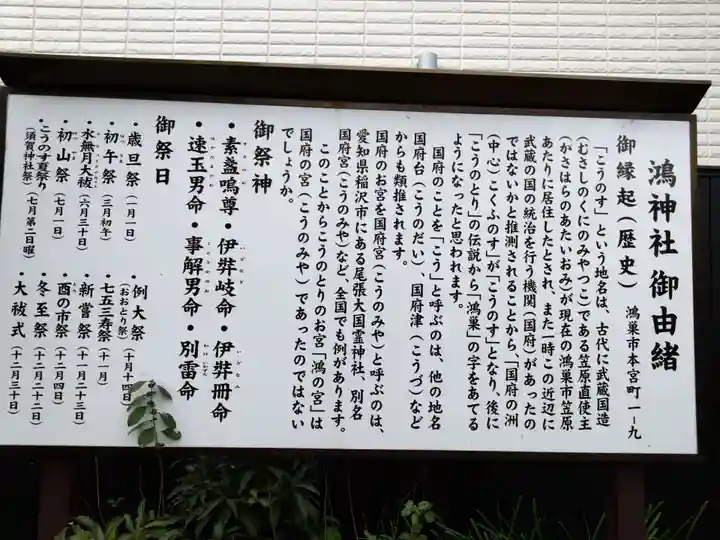 鴻神社 御由緒
御縁起(歴史) 鴻巣市本宮町一-九
「こうのす」という地名は、古代に武蔵国造
(むさしのくにのみやつこ)である笠原直使主
(かさはらのあたいおみ)が現在の鴻巣市笠原
あたりに居住したとされ、また一時この近辺に
武蔵の国の統治を行う機関(国府)があったの
ではないかと推測されることから、「国府の洲
(中心)こくふのす」が「こうのす」となり、後に
「こうのとり」の伝説から「鴻巣」の字をあてる
ようになったと思われます。
国府のことを「こう」と呼ぶのは、他の地名
国府台(こうのだい)、国府津(こうづ)など
からも類推されます。
国府のお宮を国府宮(こうのみや)と呼ぶのは、
愛知県稲沢市にある尾張大国霊神社、別名
国府宮(こうのみや)など、全国でも例があります。
このことからこうのとりのお宮「鴻の宮」は
国府の宮(こうのみや)であったのではない
でしょうか。
御祭神
・素盞嗚尊・伊弉岐命・伊弉冊命
・速玉男命・事解男命・別雷命
御祭日
・歳旦祭(一月一日)
・初午祭(三月初午)
・水無月大祓(六月三十日)
・初山祭(七月一日)
・こうのす夏祭り
(須賀神社祭)(七月第二日曜)
・例大祭
(おおとり祭)(十月十四日)
・七五三寿祭(十一月)
・新嘗祭(十一月二十三日)
・酉の市祭(十二月四日)
・冬至祭(十二月二十二日)
・大祓式(十二月三十日)